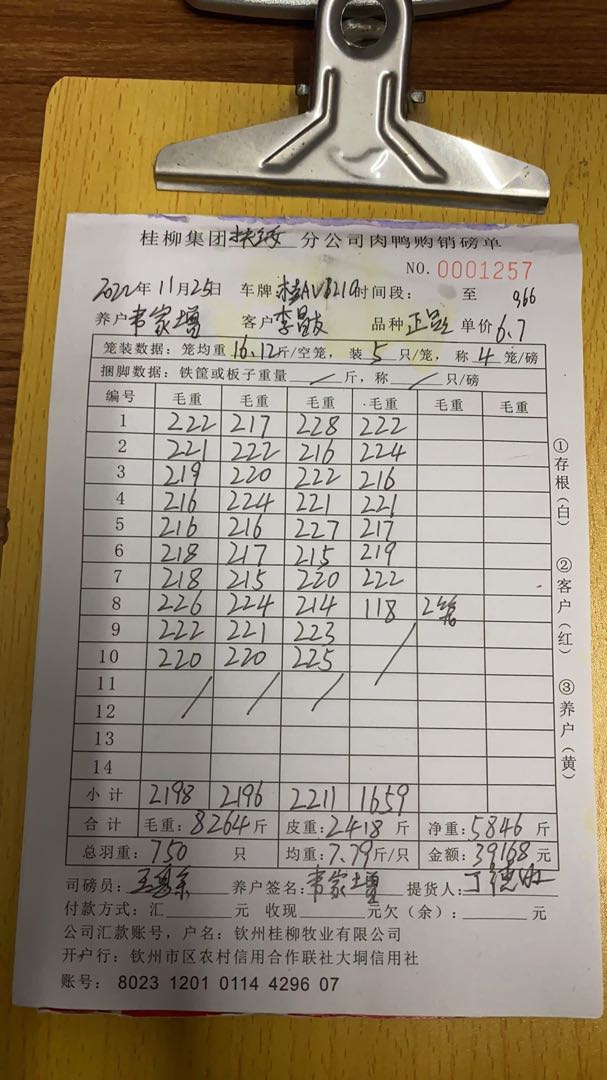 桂柳集团扶绥分公司肉鸭购销磅单
NO.0001257
2022年11月25日 车牌 时间段: 至 966
养户韦家增 客户李昌友 品种正品 单价6.7
笼装数据:笼均重16.12斤/空笼,装5只/笼,称4笼/磅
捆脚数据:铁筐或板子重量/斤,称/只/磅
编号 毛重 毛重 毛重 毛重 毛重 毛重
1 222 217 228 222
2 221 222 216 224
3 219 220 222 216
4 216 224 221 221
5 216 216 227 217
6 218 217 215 219
7 218 215 220 222
8 226 224 214 118 2笼
9 222 221 223 /
10 220 220 225
11 / / /
12
13
14
小计 2198 2196 2211 1659
合计 毛重:8264斤 皮重:2418斤 净重:5846斤
总羽重:750只 均重:7.79斤/只 金额:39168元
司磅员: 养户签名:韦家增 提货人:
付款方式:汇 元 收现 元欠(余): 元
公司汇款账号,户名:钦州桂柳牧业有限公司
开户行:钦州市区农村信用合作联社大垌信用社
账号: 8023 1201 0114 4296 07
①存根(白)
②客户(红)
③养户(黄)